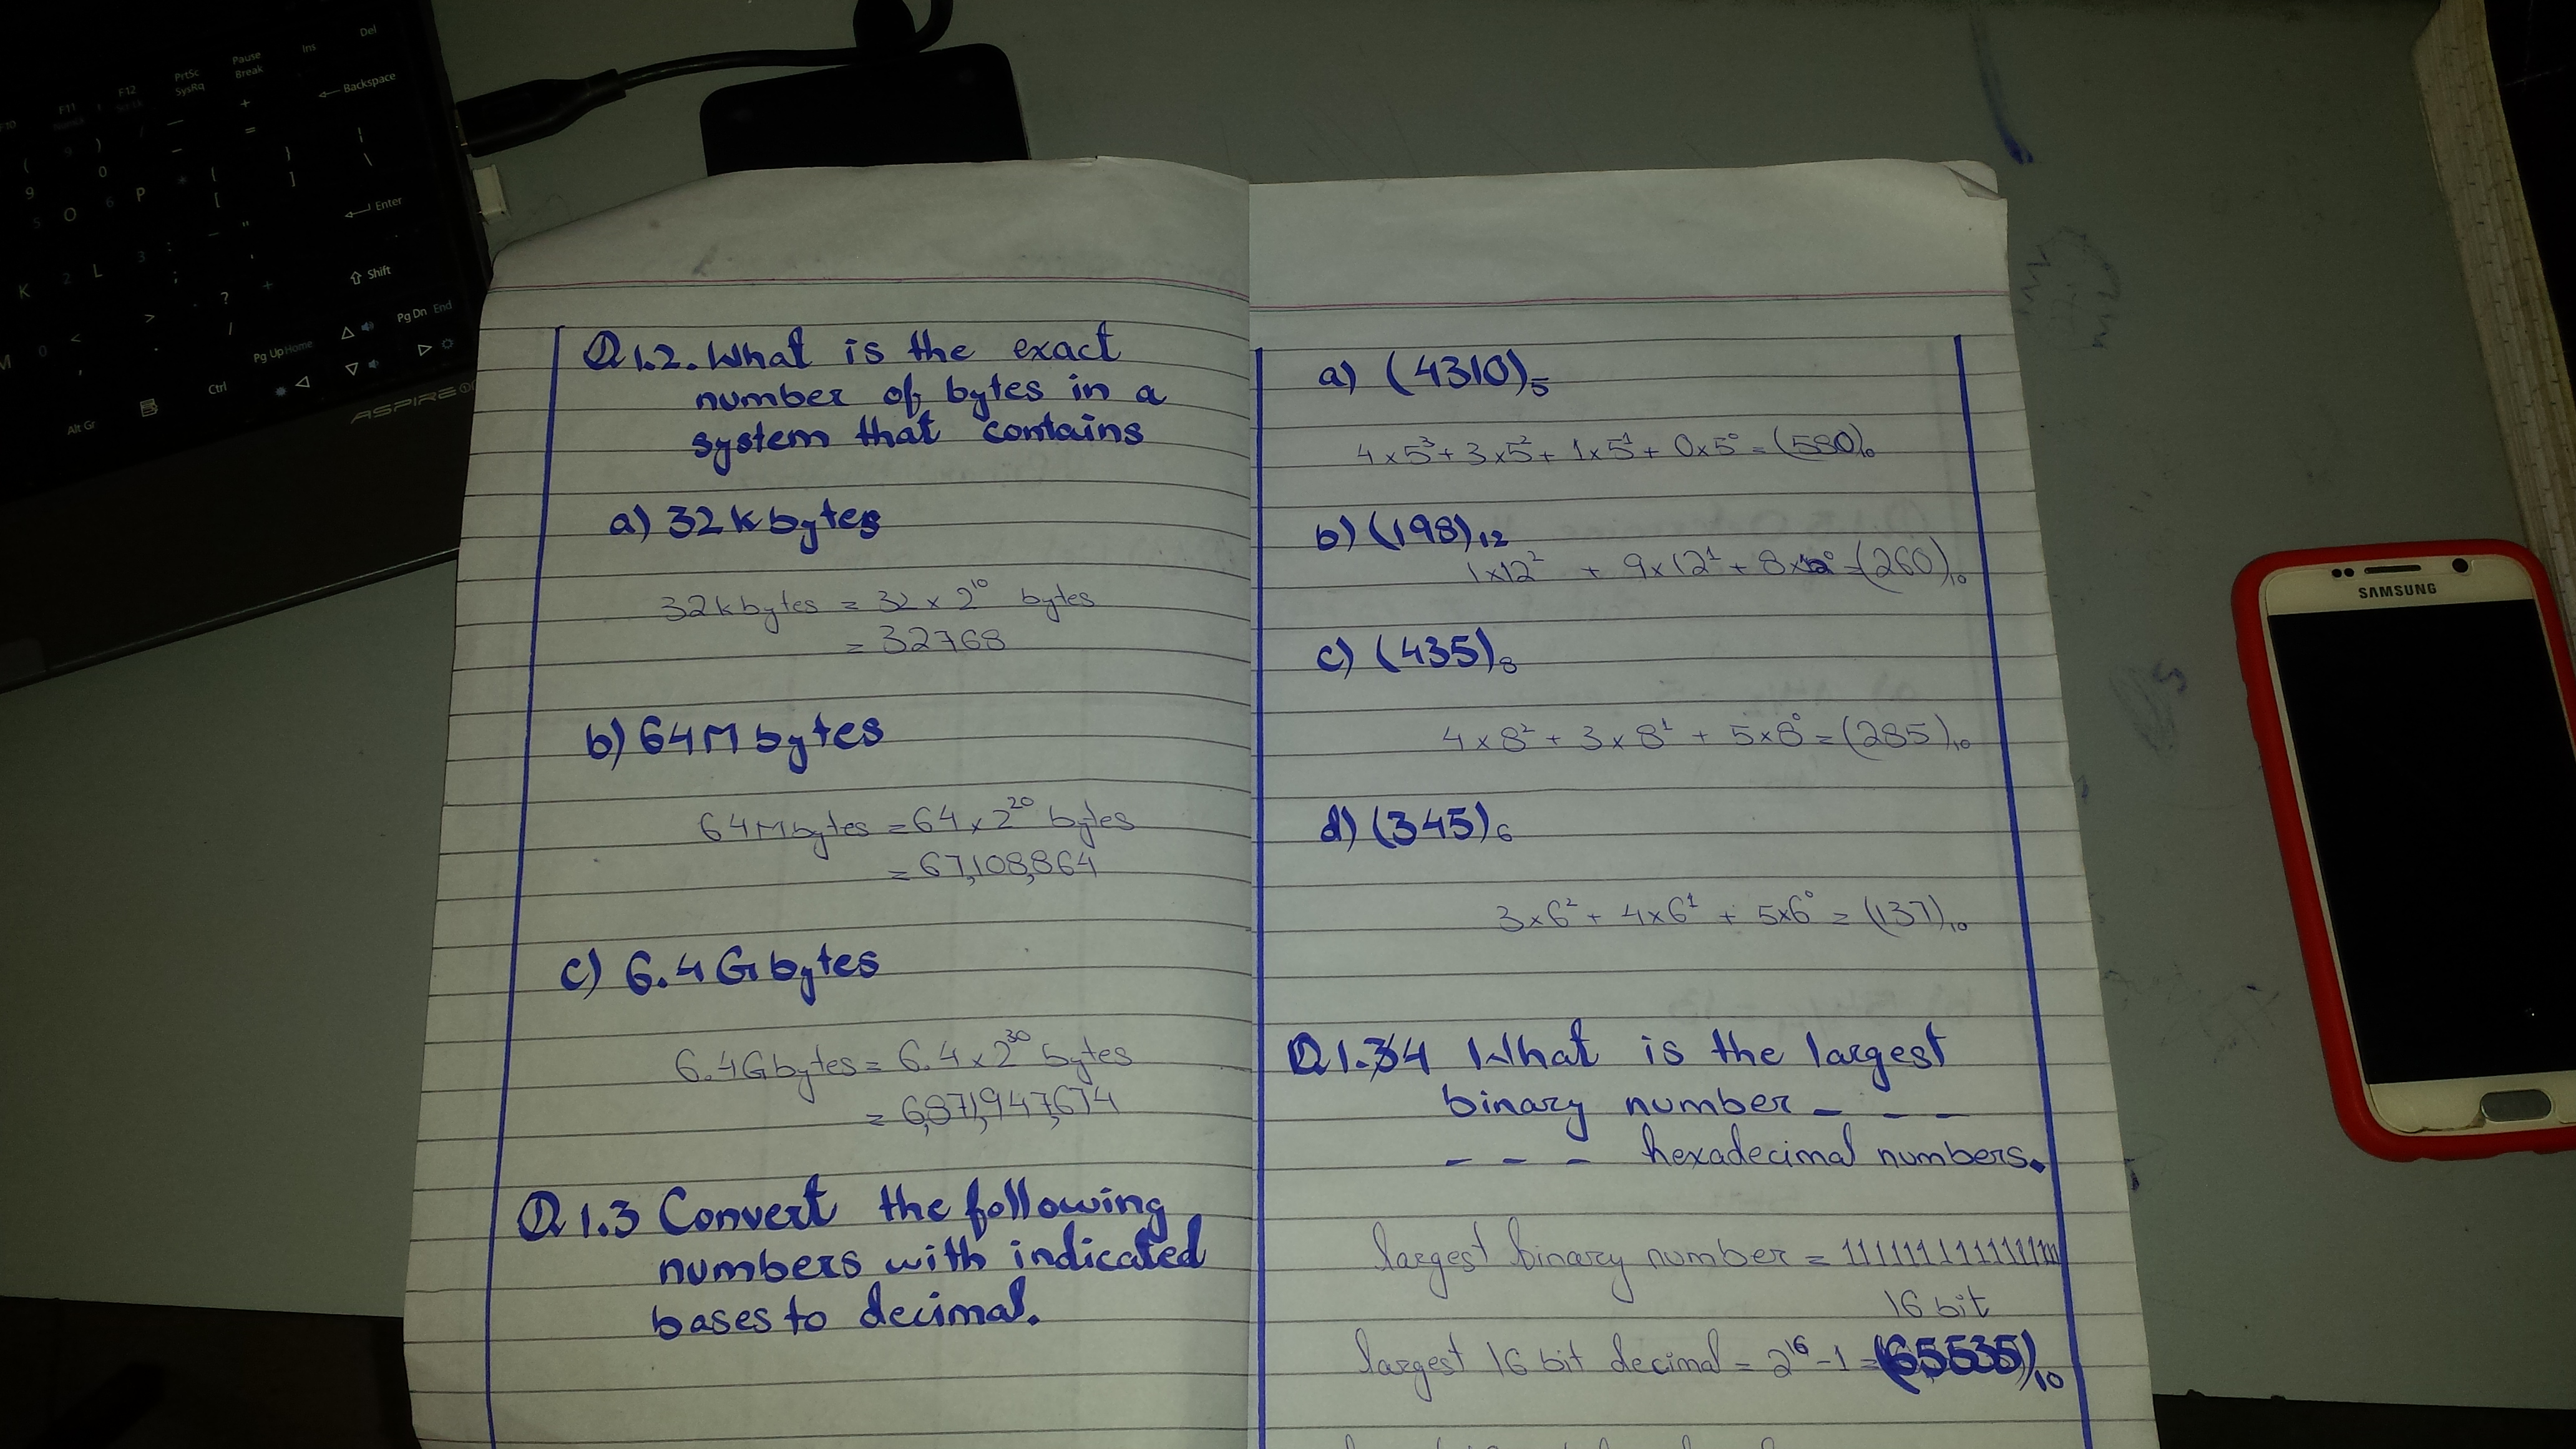 Q1.2. What is the exact
number of bytes in a
system that contains
a) 32K bytes
32k bytes = 32 x 2¹⁰ bytes
= 32768
b) 64M bytes
64M bytes = 64 x 2²⁰ bytes
= 67,108,864
c) 6.4G bytes
6.4G bytes = 6.4 x 2³⁰ bytes
= 6,871,947,674
Q1.3 Convert the following
numbers with indicated
bases to decimal.
a) (4310)₅
4 x 5³ + 3 x 5² + 1 x 5¹ + 0 x 5⁰ = (580)₁₀
b) (198)₁₂
1 x 12² + 9 x 12¹ + 8 x 12⁰ = (260)₁₀
c) (435)₈
4 x 8² + 3 x 8¹ + 5 x 8⁰ = (285)₁₀
d) (345)₆
3 x 6² + 4 x 6¹ + 5 x 6⁰ = (137)₁₀
Q1.34 What is the largest
binary number - - -
- - - - hexadecimal numbers.
largest binary number = 1111111111111111
16 bit
largest 16 bit decimal = 2¹⁶ - 1 = (65535)₁₀
SAMSUNG
ASPIRE
Del
Backspace
Ins
Pause
Break
PrtSc
SysRq
F12
F11
Enter
Shift
Pg Dn
End
Pg Up
Home
Ctrl
Alt Gr
P
O
L
K
M